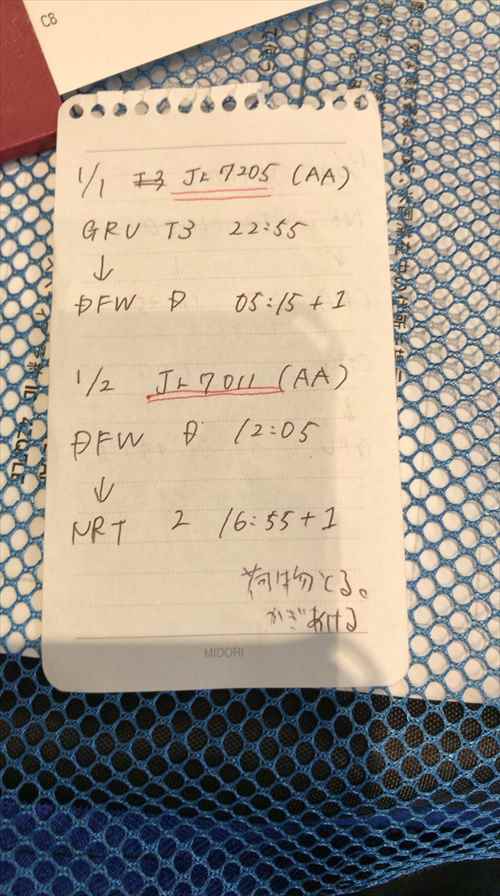 C8
1/1 T3 JL7205 (AA)
GRU T3 22:55
↓
DFW D 05:15+1
1/2 JL7011 (AA)
DFW D 12:05
↓
NRT 2 16:55+1
荷物とる。
かぎあける
MIDORI